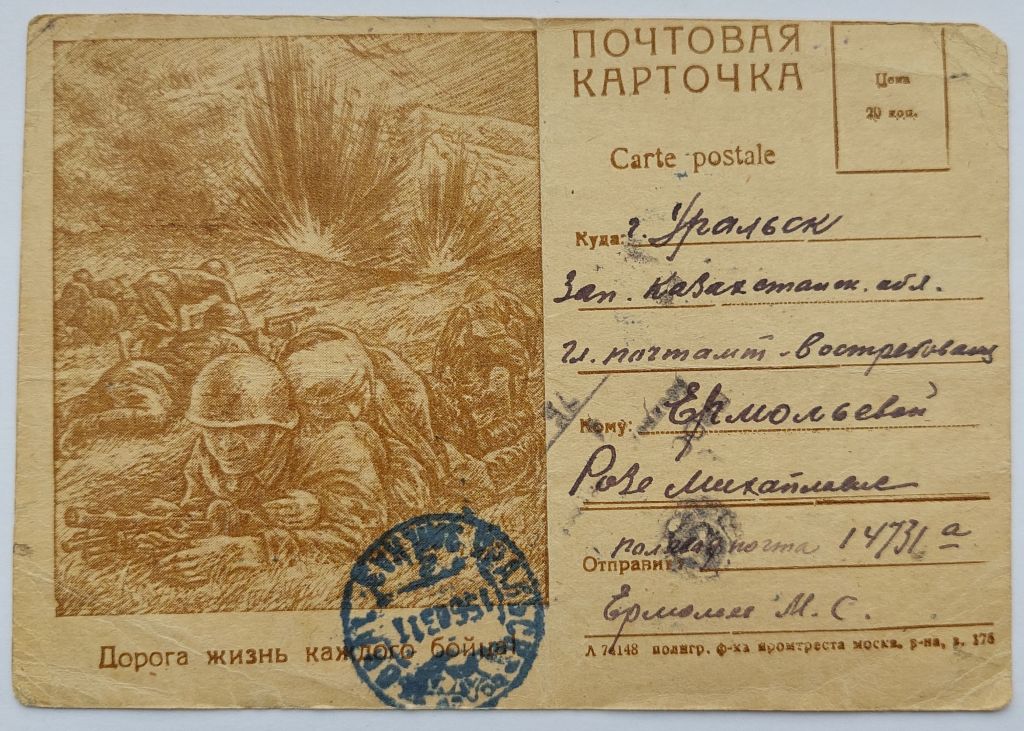 ПОЧТОВАЯ
КАРТОЧКА
Цена
20 коп.
Carte postale
Куда: г. Уральск
Зап. Казахстанск. обл.
гл. почтамт - востребован
Кому: Ермольевой
Розе Михайловне
полев. почта 14731 а
Отправит.
Ермольев М. С.
Л 74148 полигр. ф-ка промтреста москв. р-на, з. 176
Дорога жизнь каждого бойца!
УРАЛЬСК